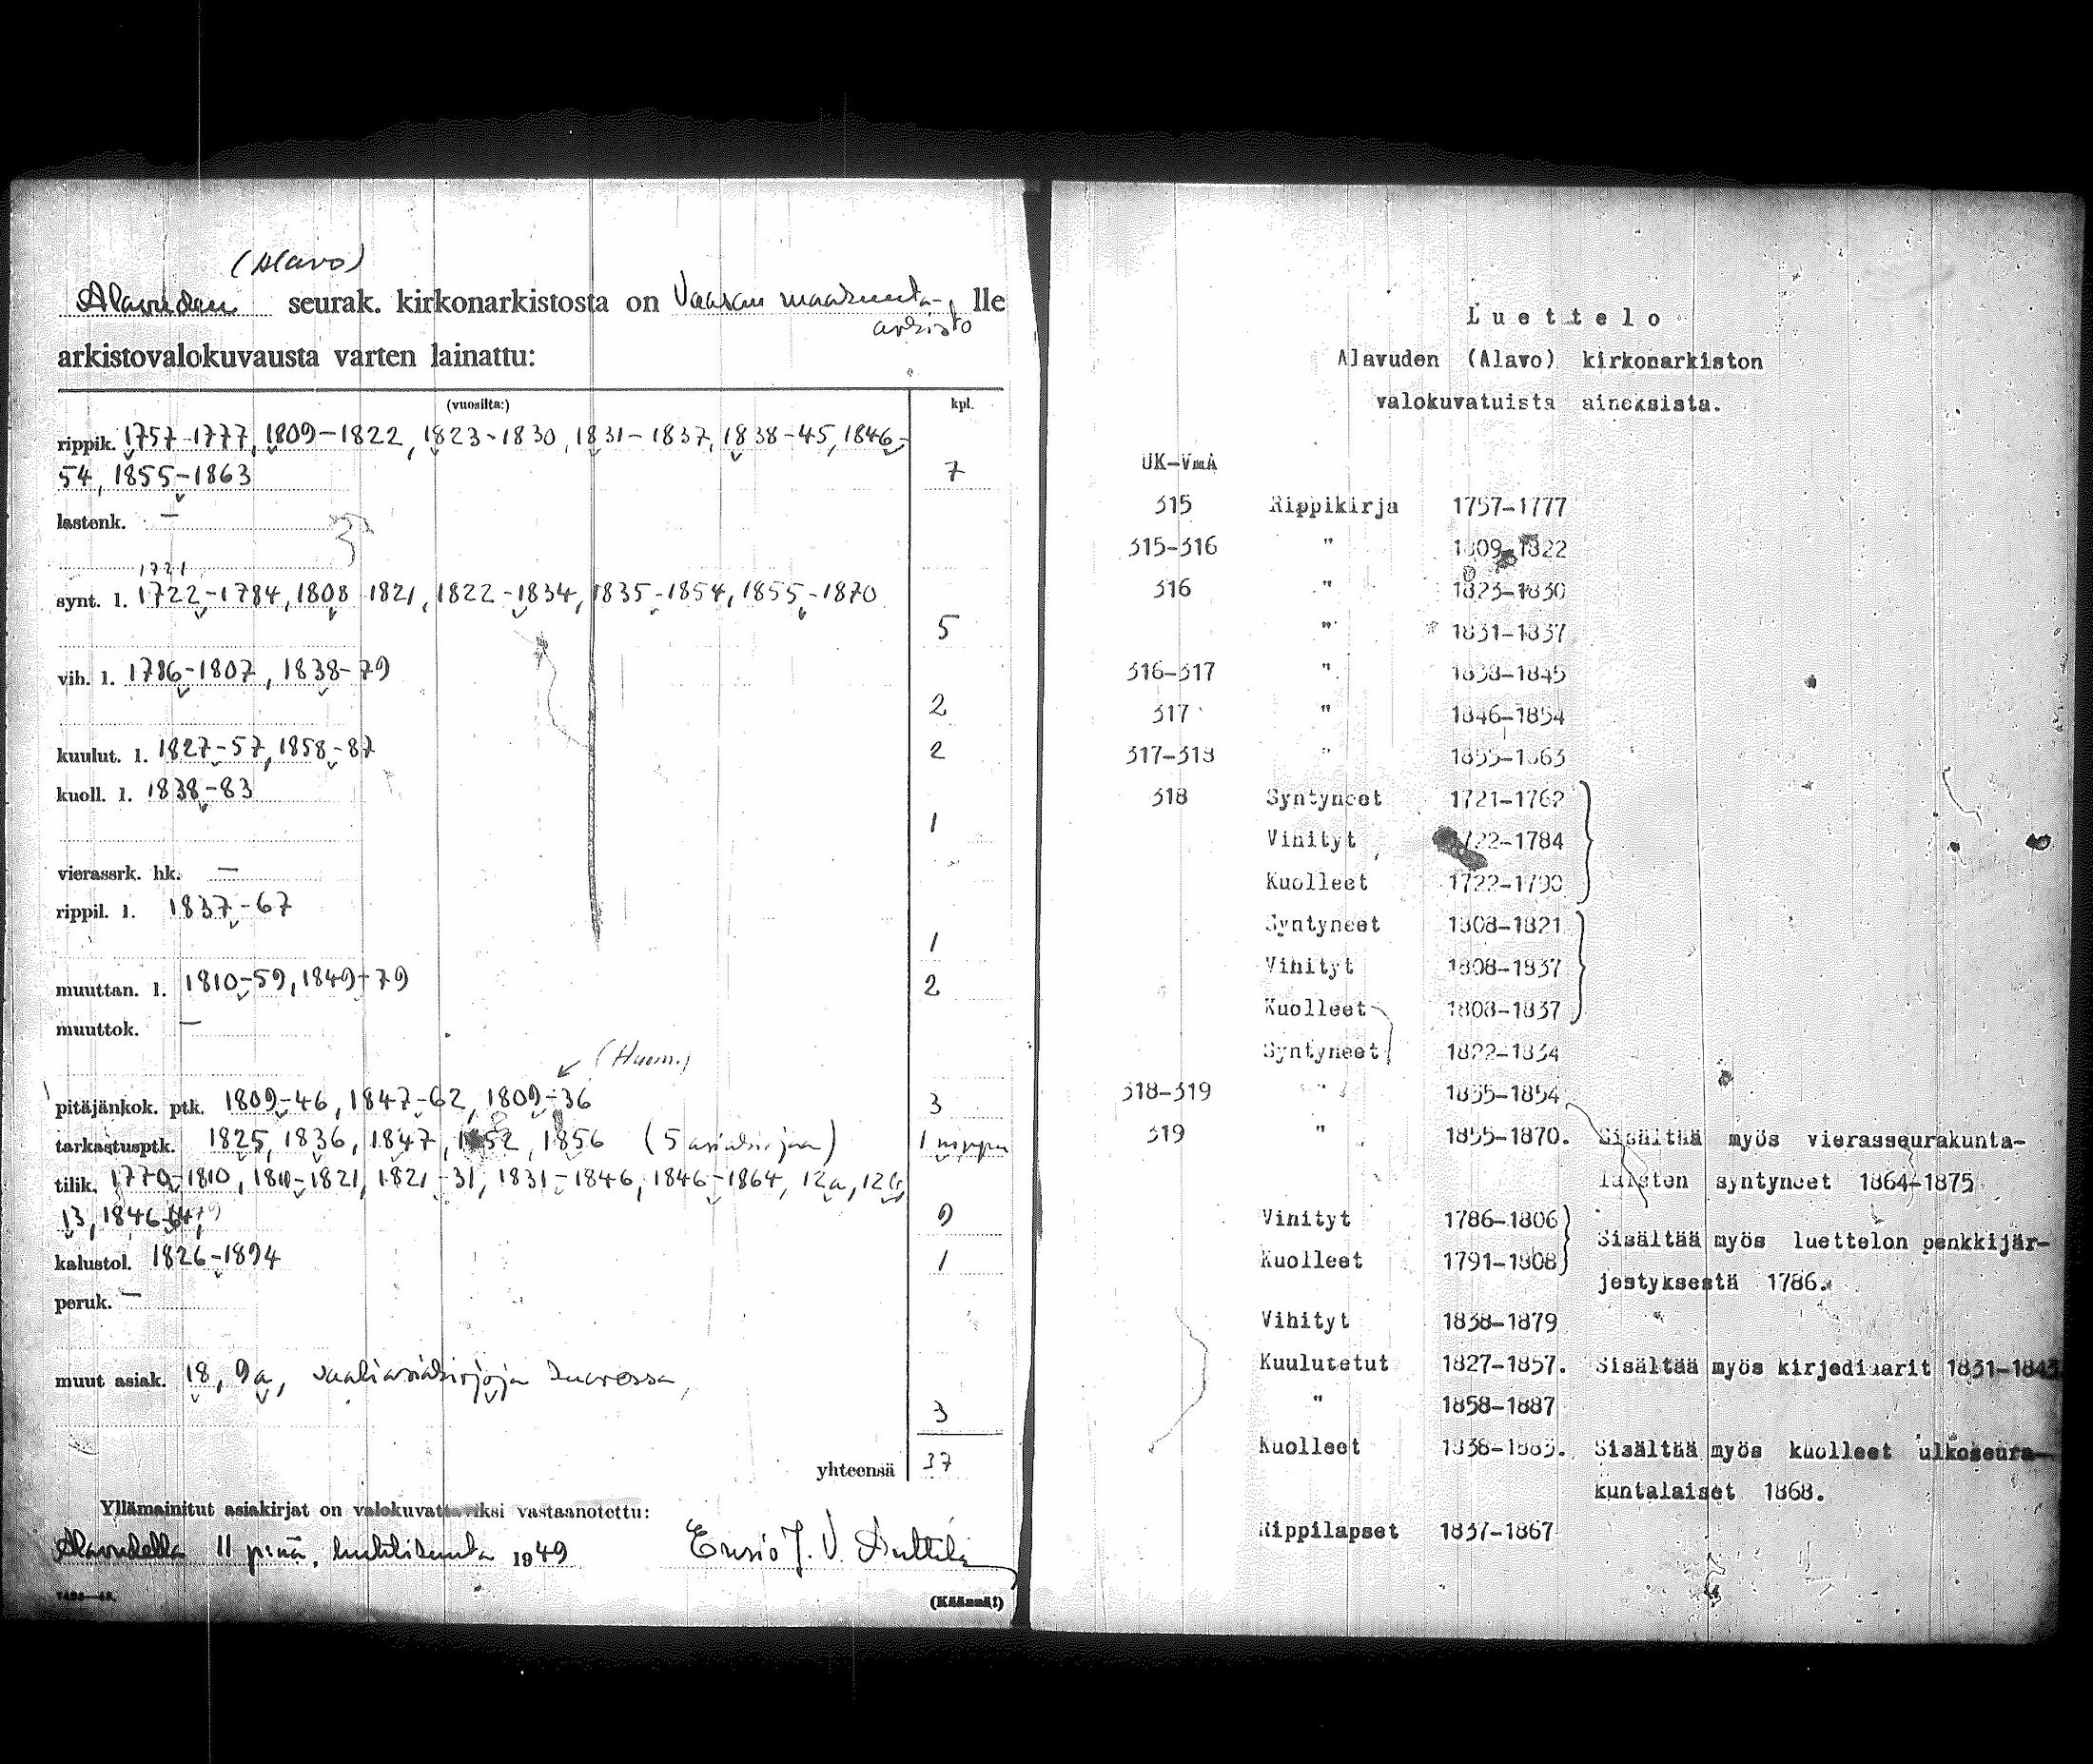 (Alavo)
Alavuden seurak. kirkonarkistosta on Vaasan maakunta- lle
arkisto
arkistovalokuvausta varten lainattu:
(vuosilta:) kpl.
rippik. 1757-1777, 1809-1822, 1823-1830, 1831-1837, 1838-45, 1846-
54, 1855-1863 7
lastenk. —
1721
synt. l. 1722-1784, 1808 1821, 1822-1834, 1835-1854, 1855-1870
5
vih. l. 1786-1807, 1838-79
2
kuulut. l. 1827-57, 1858-87 2
kuoll. l. 1838-83
1
vierassrk. hk. —
rippil. l. 1837-67
1
muuttan. l. 1810-59, 1849-79 2
muuttok. —
(Huom.)
pitäjänkok. ptk. 1809-46, 1847-62, 1809-36 3
tarkastusptk. 1825, 1836, 1847, 1852, 1856 (5 asiakirjaa) 1 nippu
tilik. 1770-1810, 1810-1821, 1821-31, 1831-1846, 1846-1864, 12a, 12b,
13, 1846- 9
kalustol. 1826-1894 1
peruk. —
muut asiak. 18, 9a, vaaliasiakirjoja kuoressa,
3
yhteensä 37
Yllämainitut asiakirjat on valokuvattaviksi vastaanotettu:
Alavudella 11 pnä, huhtikuuta 1949 Ensio J. V.
(Käännä!)
Luettelo
Alavuden (Alavo) kirkonarkiston
valokuvatuista aineksista.
UK-VmA
315 Rippikirja 1757-1777
315-316 " 1809-1822
316 " 1823-1830
" 1831-1837
316-317 " 1838-1845
317 " 1846-1854
317-318 " 1855-1863
318 Syntyneet 1721-1762
Vihityt 1722-1784
Kuolleet 1722-1790
Syntyneet 1808-1821
Vihityt 1808-1837
Kuolleet 1808-1837
Syntyneet 1822-1834
318-319 " 1835-1854
319 " 1855-1870. Sisältää myös vierasseurakunta-
laisten syntyneet 1864-1875
Vihityt 1786-1806
Sisältää myös luettelon penkkijär-
Kuolleet 1791-1808
jestyksestä 1786.
Vihityt 1838-1879
Kuulutetut 1827-1857. Sisältää myös kirjediaarit 1831-1843
" 1858-1887
Kuolleet 1838-1883. Sisältää myös kuolleet ulkoseura-
kuntalaiset 1868.
Rippilapset 1837-1867